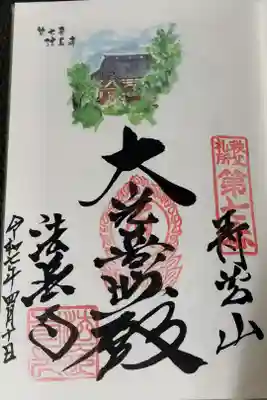 秩父札所
第七番
青苔山
大光普照殿
法長寺
令和七年四月十日